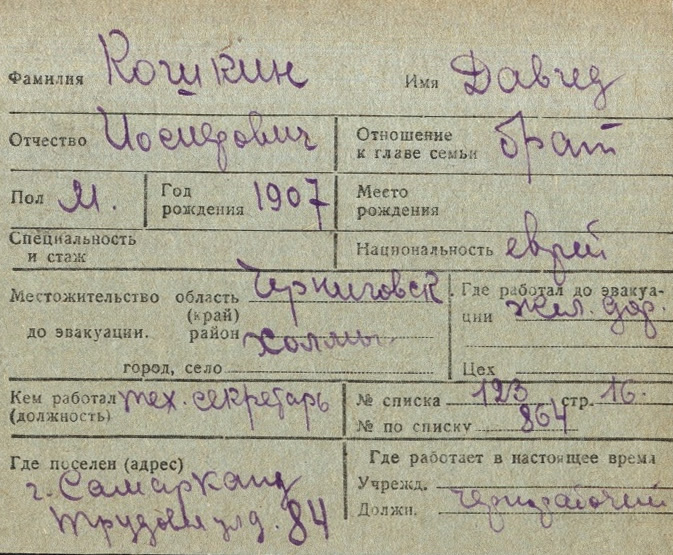 Фамилия Кошкин Имя Давид
Отчество Иосифович Отношение к главе семьи брат
Пол М. Год рождения 1907 Место рождения
Специальность и стаж Национальность еврей
Местожительство область (край) Черниговск. Где работал до эвакуации жел. дор.
до эвакуации. район Холмы
город, село Цех
Кем работал (должность) тех. секретарь № списка 123 стр. 16.
№ по списку 864
Где поселен (адрес) Где работает в настоящее время
г. Самарканд Учрежд.
84 Должн. чернорабочий